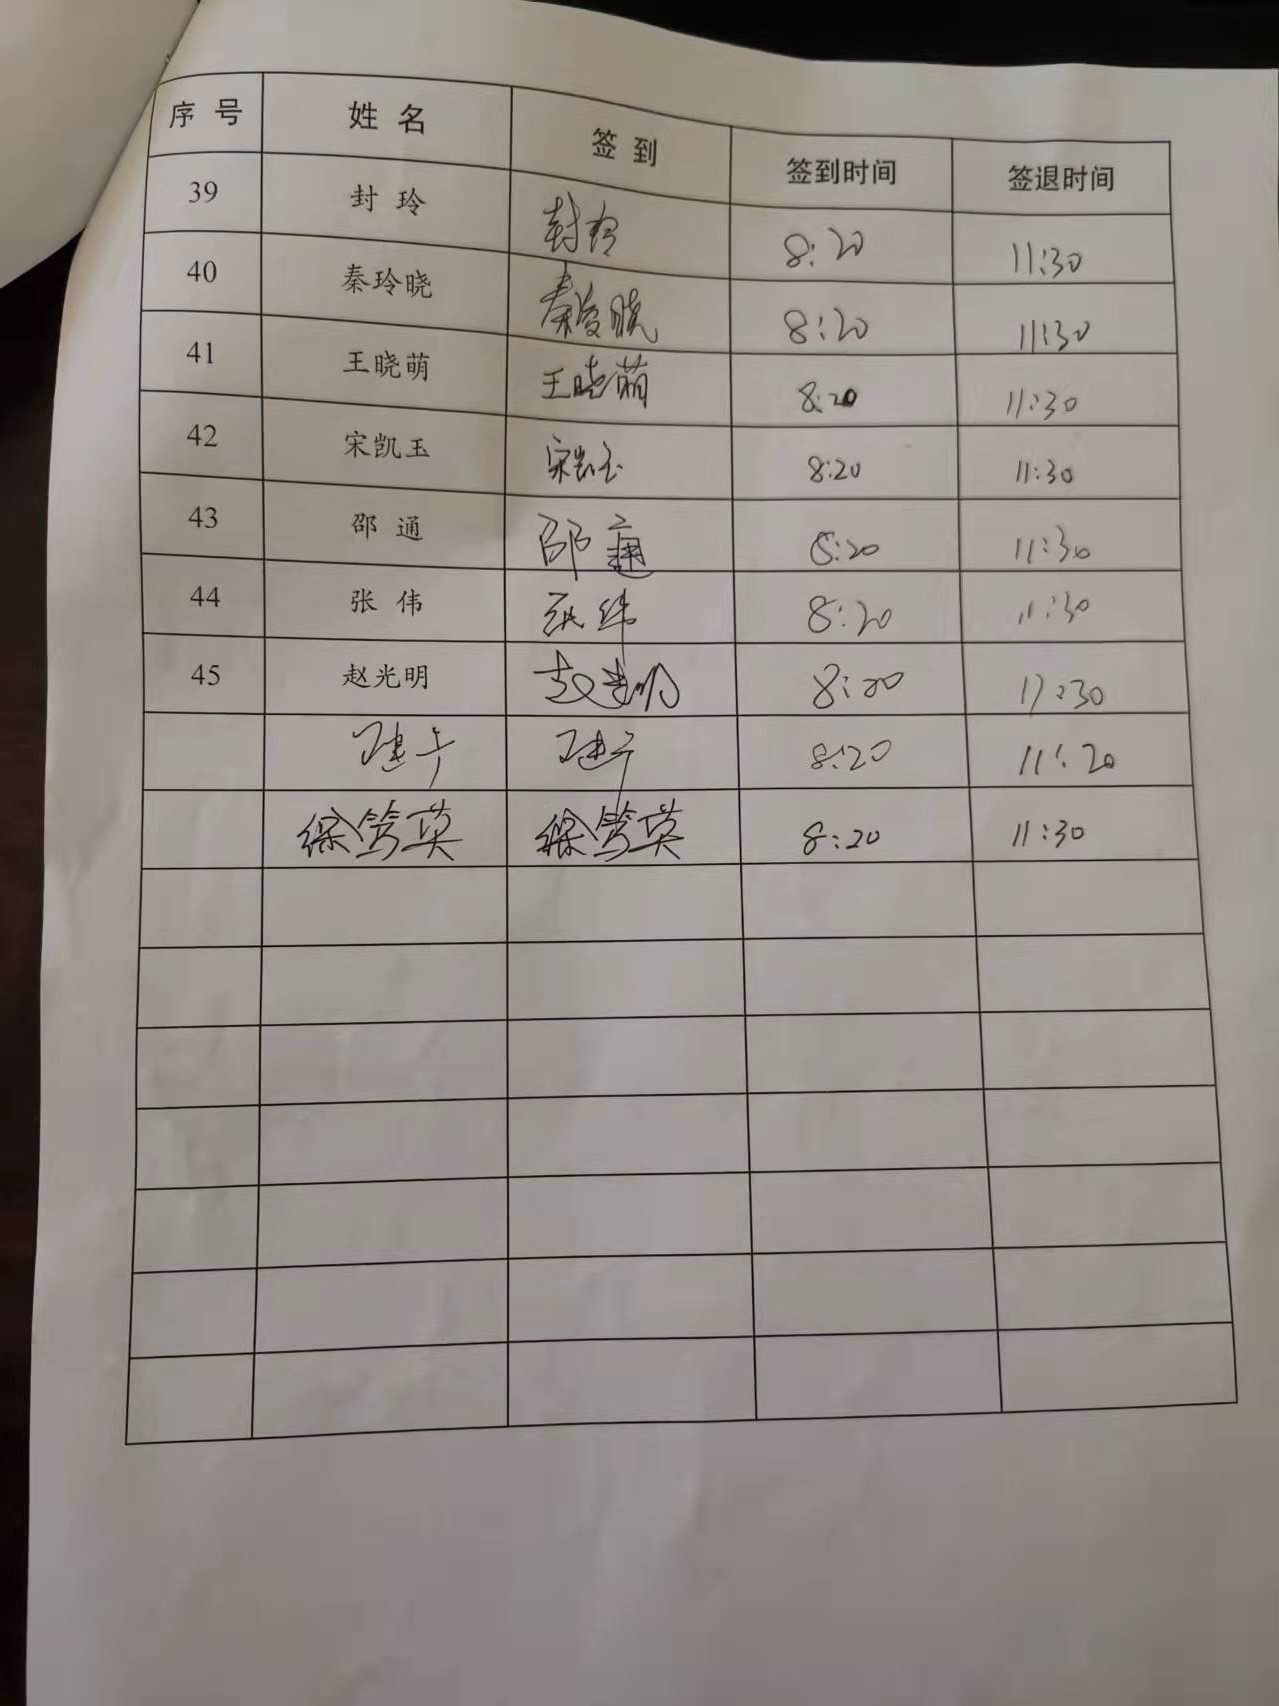 序 号 姓 名 签 到 签到时间 签退时间
39 封 玲 封玲 8:20 11:30
40 秦玲晓 秦凌晓 8:20 11:30
41 王晓萌 王晓萌 8:20 11:30
42 宋凯玉 宋凯玉 8:20 11:30
43 邵 通 邵通 8:20 11:30
44 张 伟 张伟 8:20 11:30
45 赵光明 赵光明 8:20 11:30
8:20 11:20
徐笃英 徐笃英 8:20 11:30